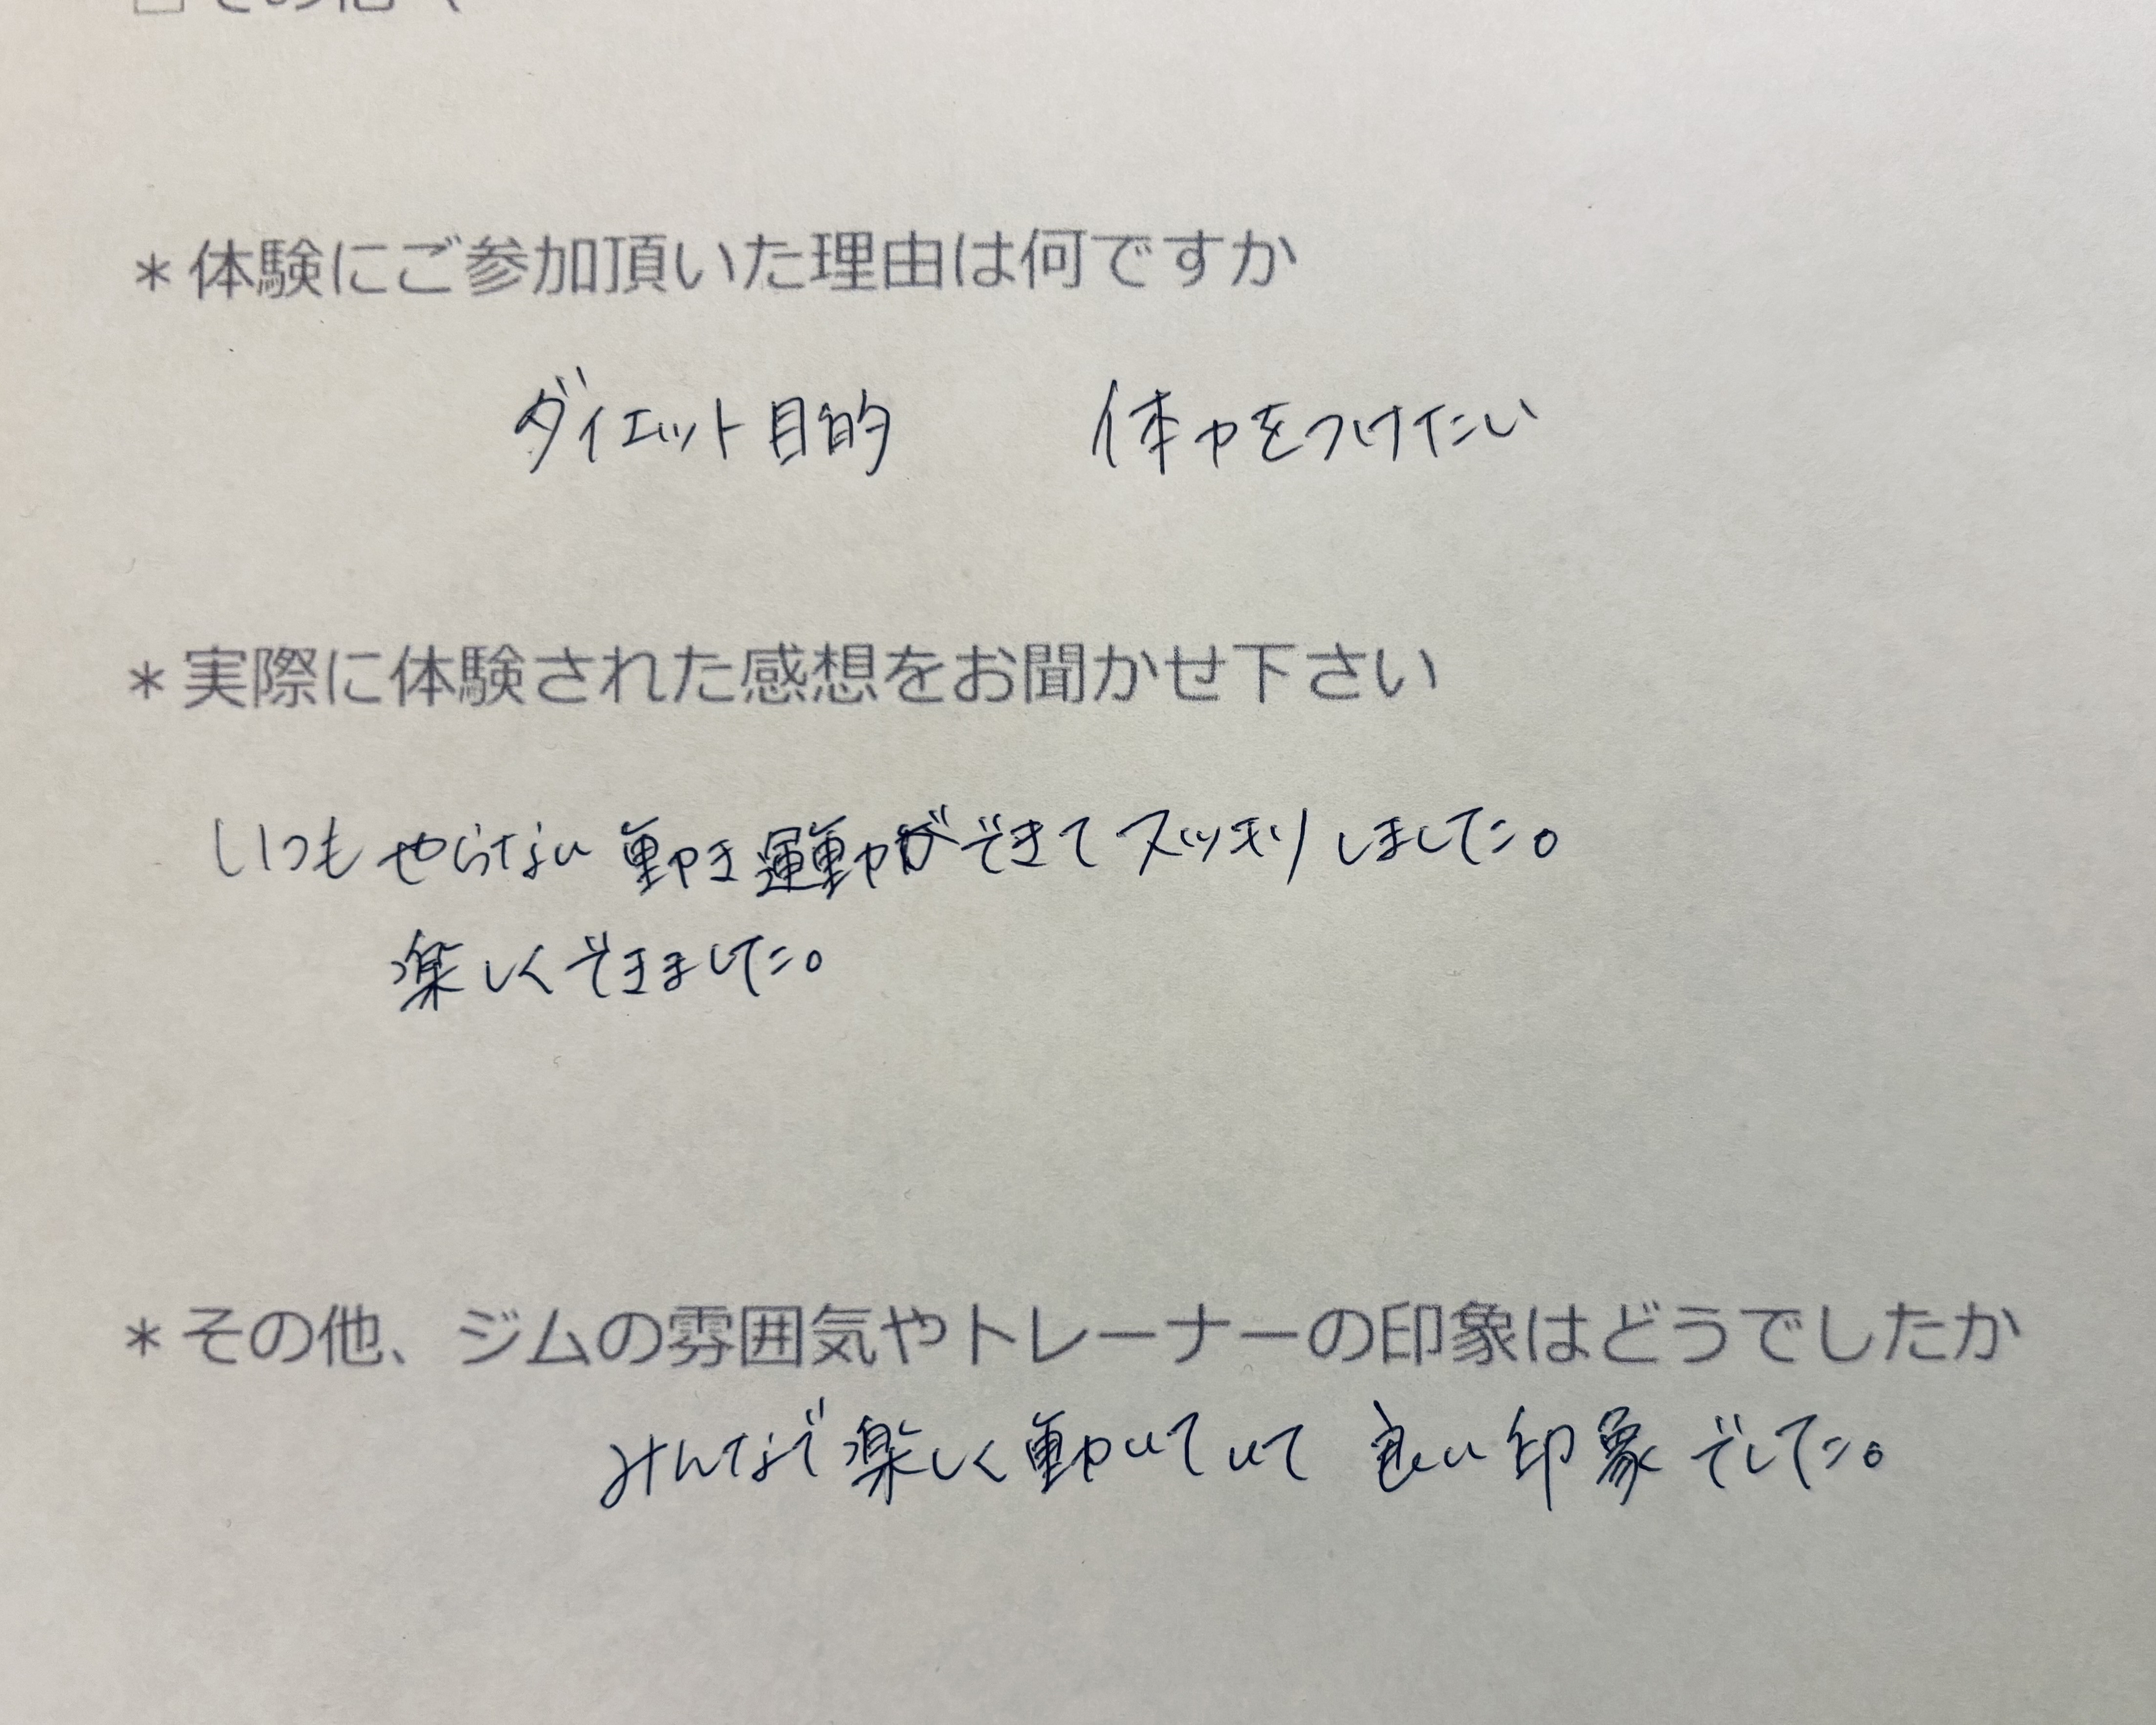 ＊体験にご参加頂いた理由は何ですか
ダイエット目的　体力をつけたい
＊実際に体験された感想をお聞かせ下さい
いつもやらない動き運動ができてスッキリしました。
楽しくできました。
＊その他、ジムの雰囲気やトレーナーの印象はどうでしたか
みんなで楽しく動いていて良い印象でした。